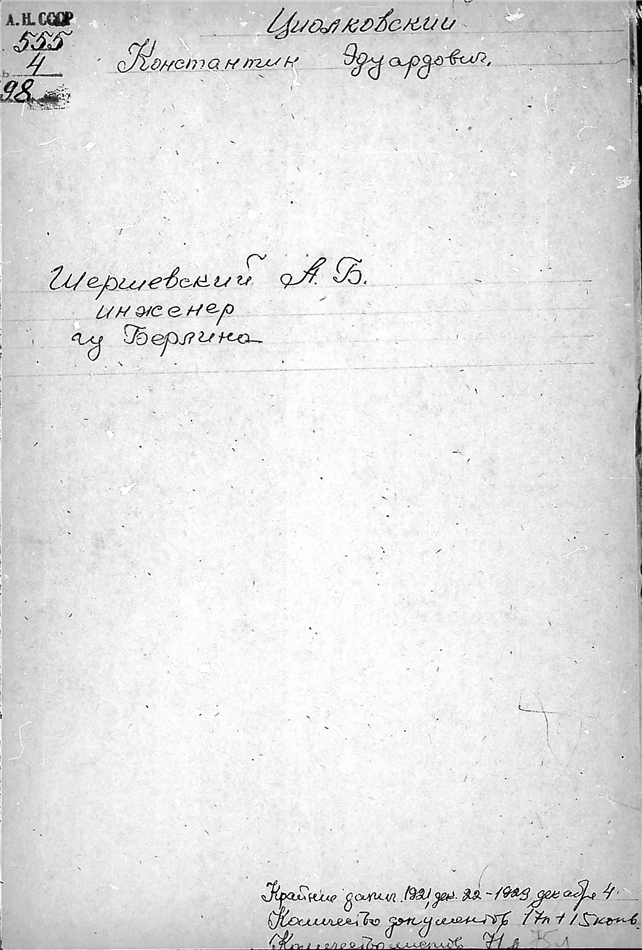 А.Н. СССР
555
4
98
Циолковский
Константин Эдуардович.
Шершевский А. Б.
инженер
из Берлина
Крайние даты: 1921, дек. 22 - 1929, декабр 4.
Количество документов 17п + 15 конв
Количество листов 71 л